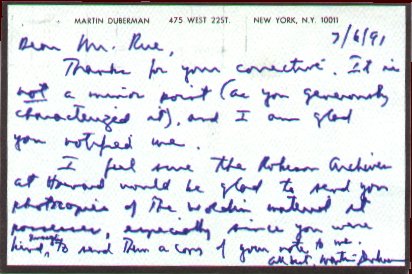 MARTIN DUBERMAN 475 WEST 22ST. NEW YORK, N.Y. 10011
7/6/91
Dear Mr. Rue,
Thanks for your corrective. It is
not a minor point (as you generously
characterized it), and I am glad
you notified me.
I feel sure the Robeson Archives
at Howard would be glad to send you
photocopies of the material it
possesses, especially since you were
kind enough to send them a copy of your note to me.
All best, Martin Duberman